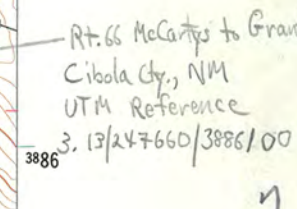 Rt. 66 McCartys to Gran
Cibola Cty., NM
UTM Reference
3. 13/247660/3886100
3886